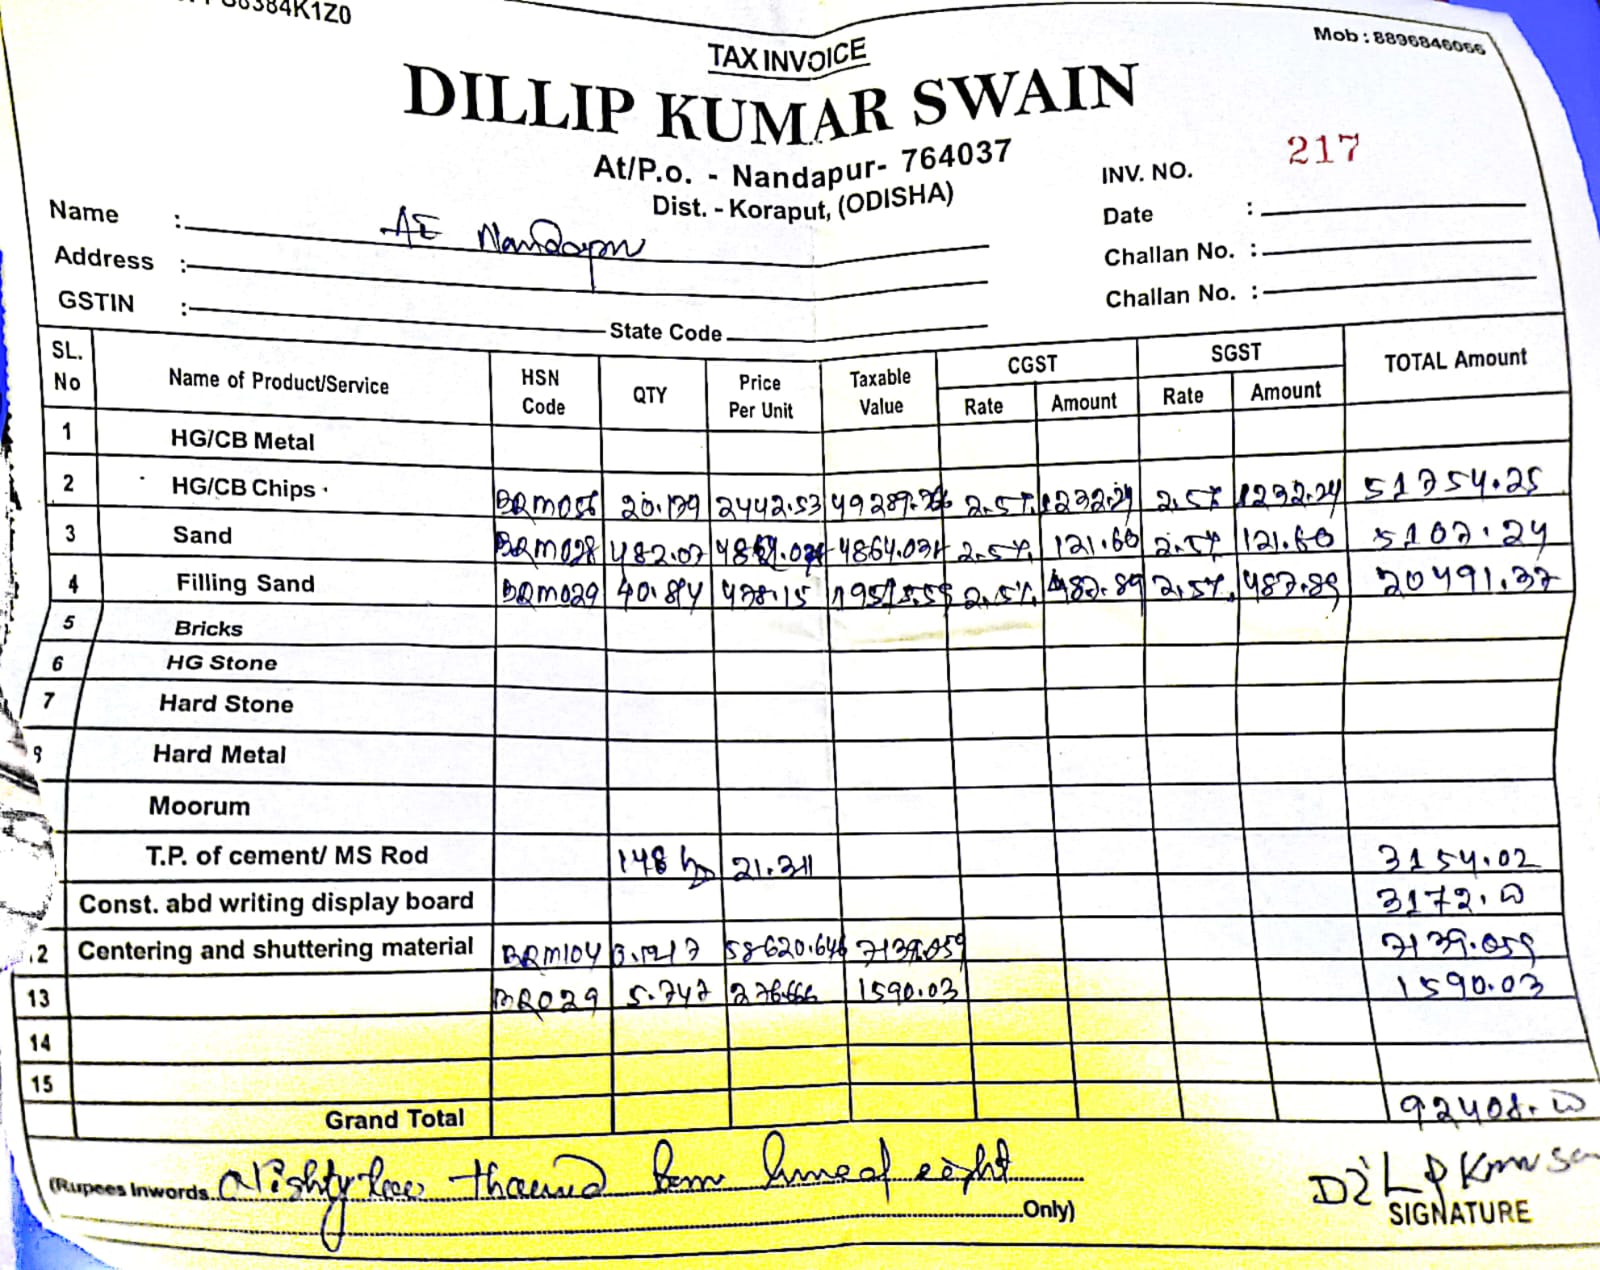 384K1Z0
TAX INVOICE
Mob : 8896846066
DILLIP KUMAR SWAIN
At/P.o. - Nandapur- 764037
Dist. - Koraput, (ODISHA)
INV. NO. 217
Name : AE Nandapur
Date :
Address :
Challan No. :
GSTIN : State Code
Challan No. :
SL. No Name of Product/Service HSN Code QTY Price Per Unit Taxable Value CGST Rate Amount SGST Rate Amount TOTAL Amount
1 HG/CB Metal
2 HG/CB Chips BRM056 20.179 2442.53 2.5% 1232.24 2.5% 1232.24 51754.25
3 Sand BRM028 2.5% 121.60 2.5% 121.60 5107.24
4 Filling Sand BRM029 40.814 478.15 2.5% 487.89 2.5% 487.89 20491.37
5 Bricks
6 HG Stone
7 Hard Stone
8 Hard Metal
Moorum
T.P. of cement/ MS Rod 148 21.311 3154.02
Const. abd writing display board 3172.00
12 Centering and shuttering material BRM104 58620.646 7139.059 7139.059
13 BR029 5.747 276.666 1590.03 1590.03
14
15
Grand Total 92408.00
(Rupees Inwords thousand eight
Only)
SIGNATURE